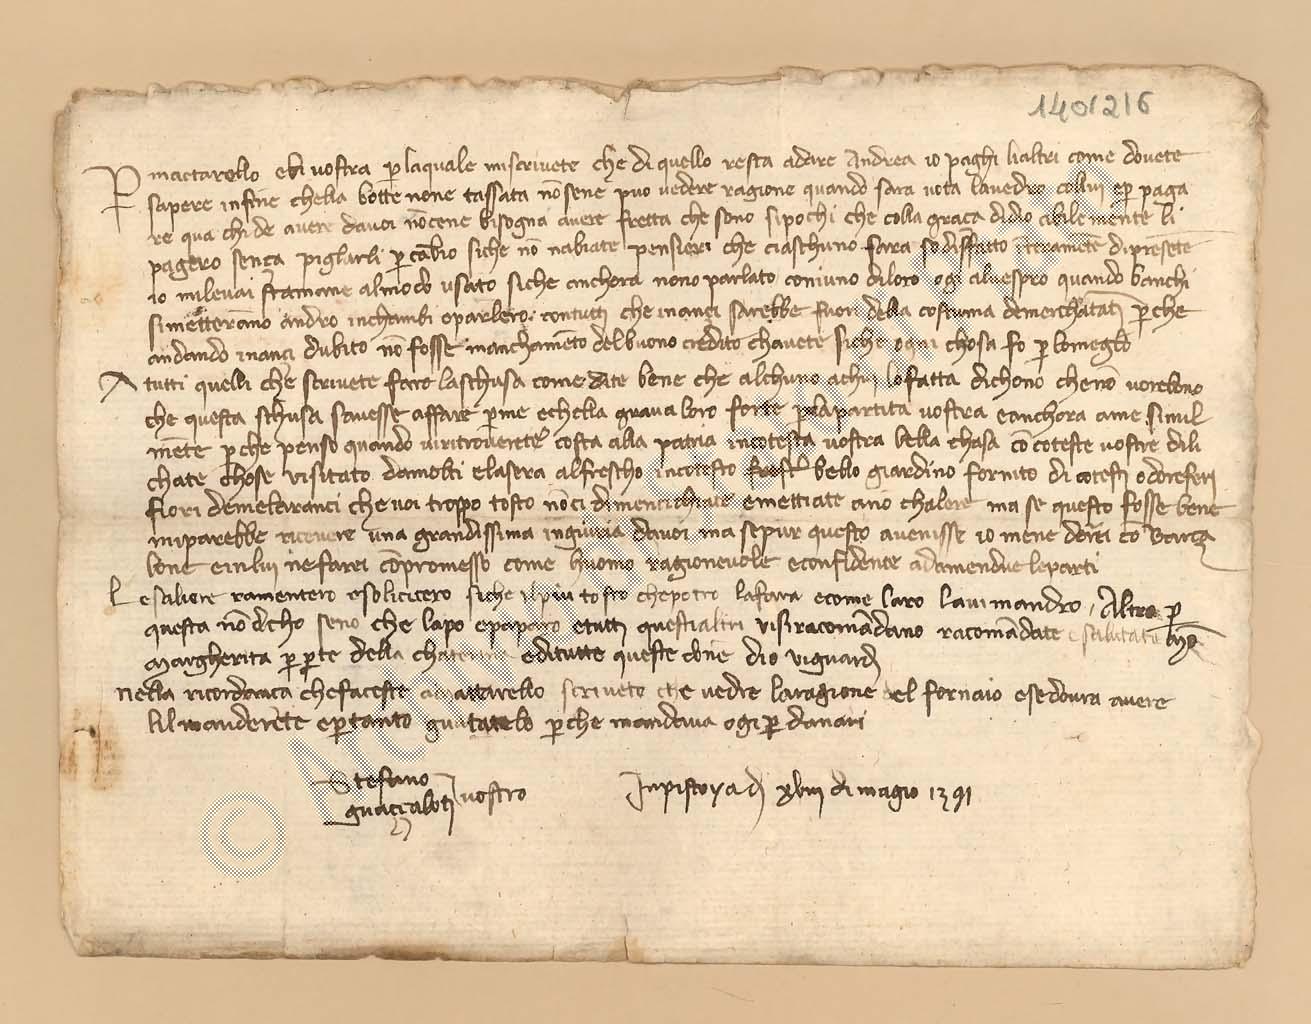 1401216
P mactarello ebi vostra p laquale miscrivete che di quello resta adare Andrea io paghi lialtri come dovete
sapere infine chella botte none tassata nosene puo vedere ragione quando sara vota lavedro collui epr paga
re qua chi de avere davoi nocene bisogna avere fretta che sono sipochi che colla graca didio abilemente li
paghero senca pigliarli p cabio siche no nabiate pensieri che ciaschuno fara sodisfatto interamete dipresete
io milevai stamane almodo usato siche anchora nono parlato coniuno diloro ogi alvespro quando banchi
simetterano andro inchambi eparlero contutti che inanci sarebbe fuori della costuma demerchatati p che
andando inanci dubito no fosse manchameto delbuono credito chavete siche ogni chosa fo p lomeglo
A tutti quelli che scrivete faro laschusa come date bene che alchuno achui lofatta dichono cheno vorebono
che questa schusa savesse affare p me echella grava loro forte p la partita vostra eanchora ame simil
mete p che penso quando viritroverete costa alla patria incotesta vostra bella chasa co coteste vostre dili
chate chose visitato damolti elasera alfrescho incotesto bello giardino fornito di cotesti odoreferi
fiori demelaranci che voi troppo tosto noci dimentichiate emettiate ano chalere ma se questo fosse bene
miparebbe ricevere una grandissima ingiuria davoi ma sepur questo avenisse io mene dorei co Barza
lone einlui nefarei copromesso come huomo ragionevole econfidente adamendue leparti
L esaliere ramentero esolicitero siche ilpiu tosto chepotro lafara ecome laro lavimandro, Altro p
questa no dicho seno che lapo epaparo etutti questialtri visiracomadano racomadate esalutate Mo
Margherita p pte della chaterina editutte queste done dio viguardi
nella ricordanca chefaceste a mattarello scriveto che vedre laragione del fornaio esedovra avere
lilmanderete epertanto guatatelo p che mandava ogi p danari
Stefano
guazaloti vostro
Inpistoya di xviii di magio 1391
©